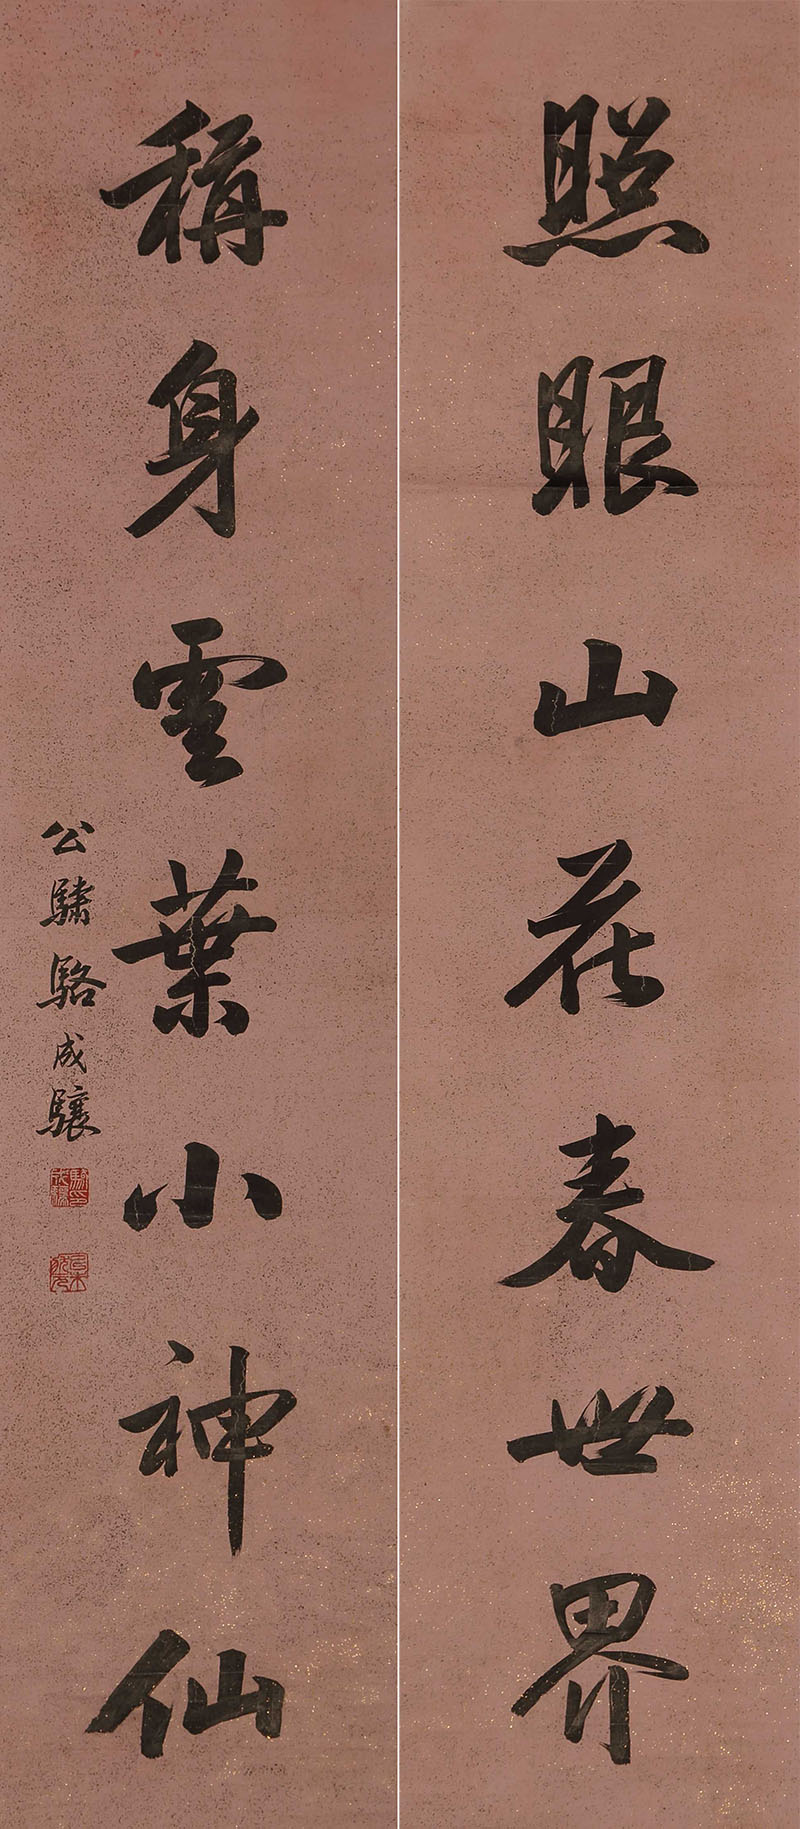 照眼山花春世界
稱身雲葉小神仙
公驌駱成驤